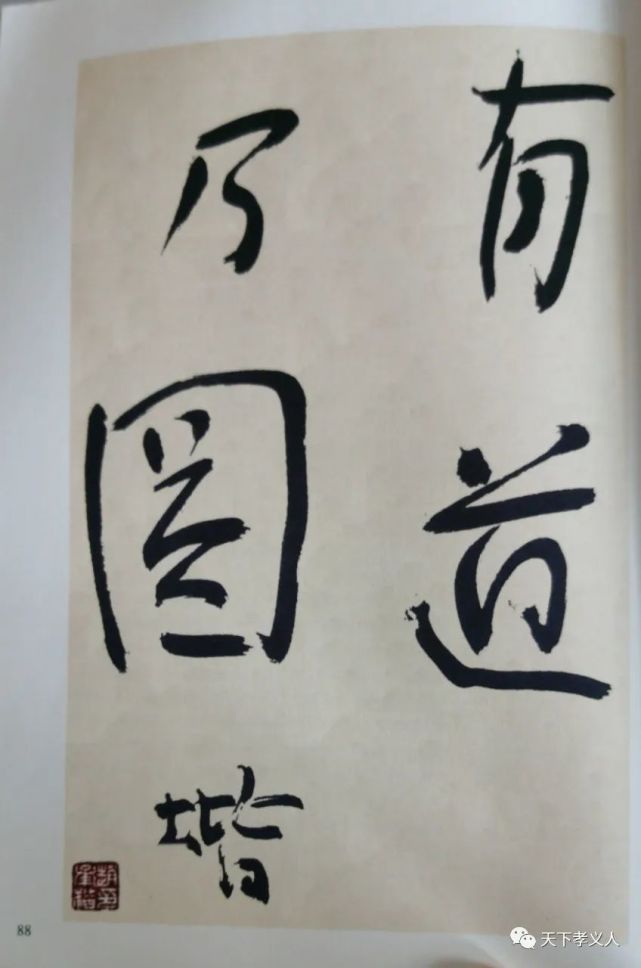 有道
乃圆
堦
88
天下孝义人